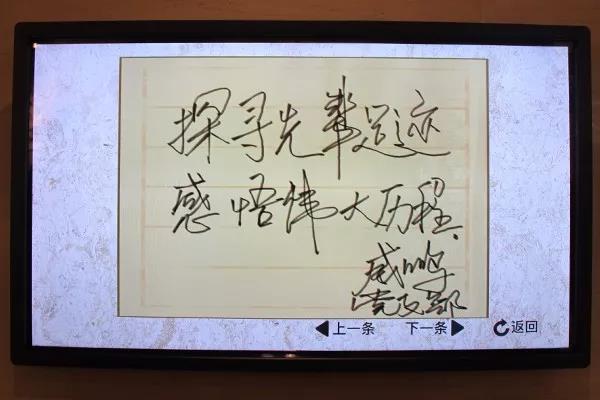 探寻先辈足迹
感悟伟大历程.
威鹏
党支部
上一条 下一条 返回